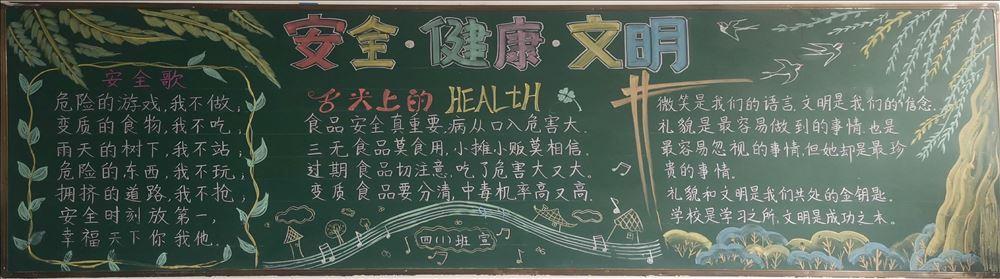 安全·健康·文明
安全歌
危险的游戏,我不做;
变质的食物,我不吃;
雨天的树下,我不站;
危险的东西,我不玩;
拥挤的道路,我不抢;
安全时刻放第一,
幸福天下你我他.
舌尖上的 HEALtH
食品安全真重要,病从口入危害大.
三无食品莫食用,小摊小贩莫相信.
过期食品切注意,吃了危害大又大.
变质食品要分清,中毒机率高又高.
四(1)班宣
微笑是我们的语言,文明是我们的信念.
礼貌是最容易做到的事情,也是
最容易忽视的事情,但她却是最珍
贵的事情.
礼貌和文明是我们共处的金钥匙.
学校是学习之所,文明是成功之本.